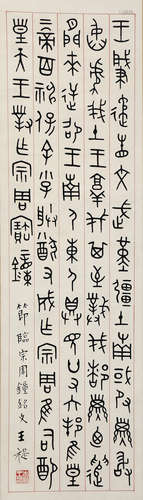 王肇遹省文武堇疆土南或𠬝孳敢
臽處我土王敦伐其至撲伐厥都𠬝孳乃遣
閒來逆卲王南尸東尸具見廿又六邦隹皇上
帝百神保余小子朕猷又成亡競我隹司配
皇天王對乍宗周寶鐘
節臨宗周鐘銘文 王禔